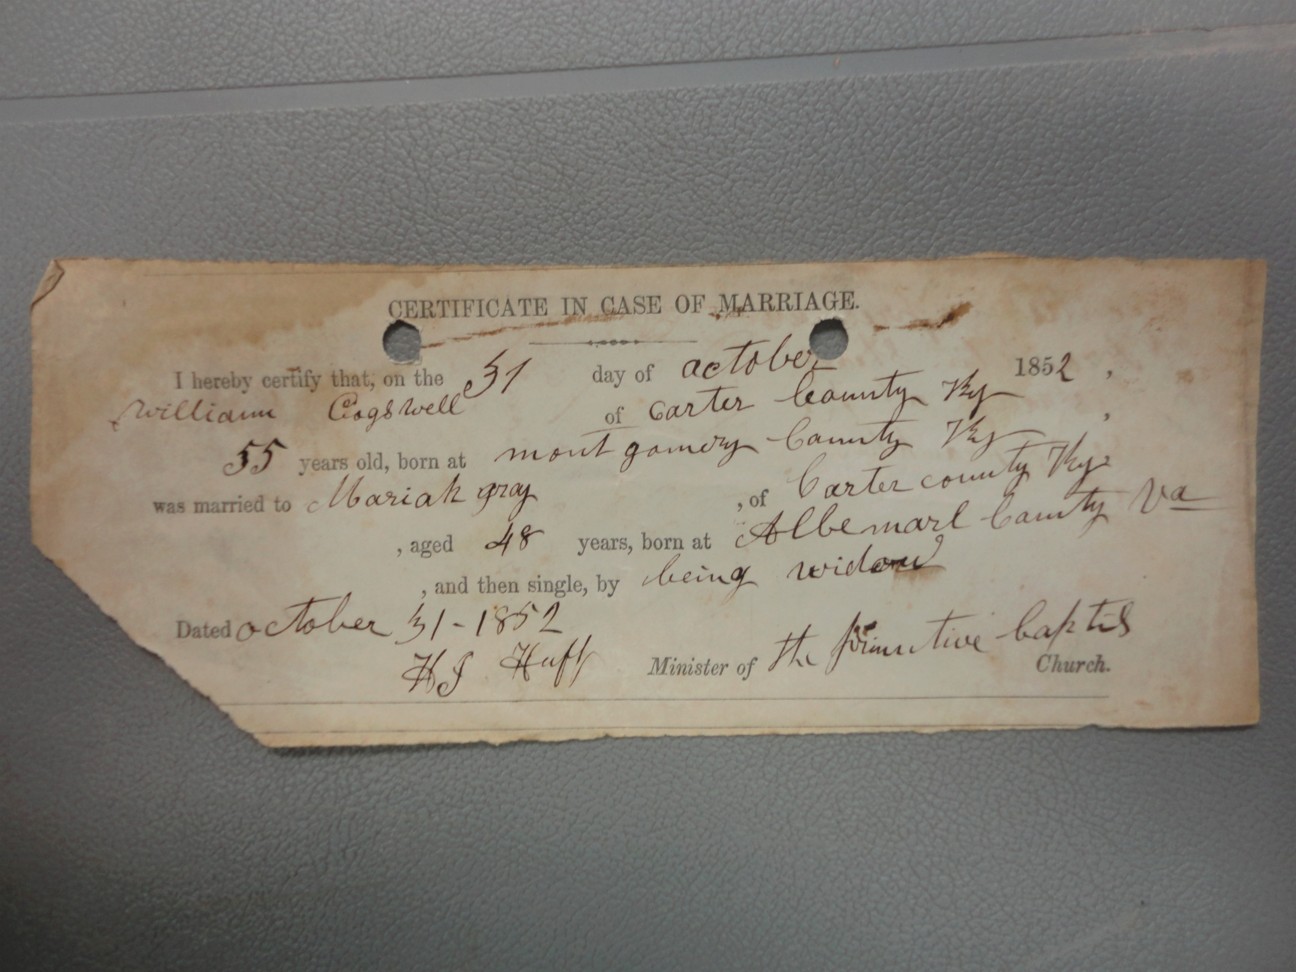 CERTIFICATE IN CASE OF MARRIAGE.
I hereby certify that, on the 31 day of october 1852,
William Cogswell of Carter County Ky,
55 years old, born at montgomery County Ky
was married to Mariah gray, of Carter county Ky
, aged 48 years, born at Albemarl County Va
, and then single, by being widow
Dated october 31-1852
H J Huff Minister of the primitive baptis Church.